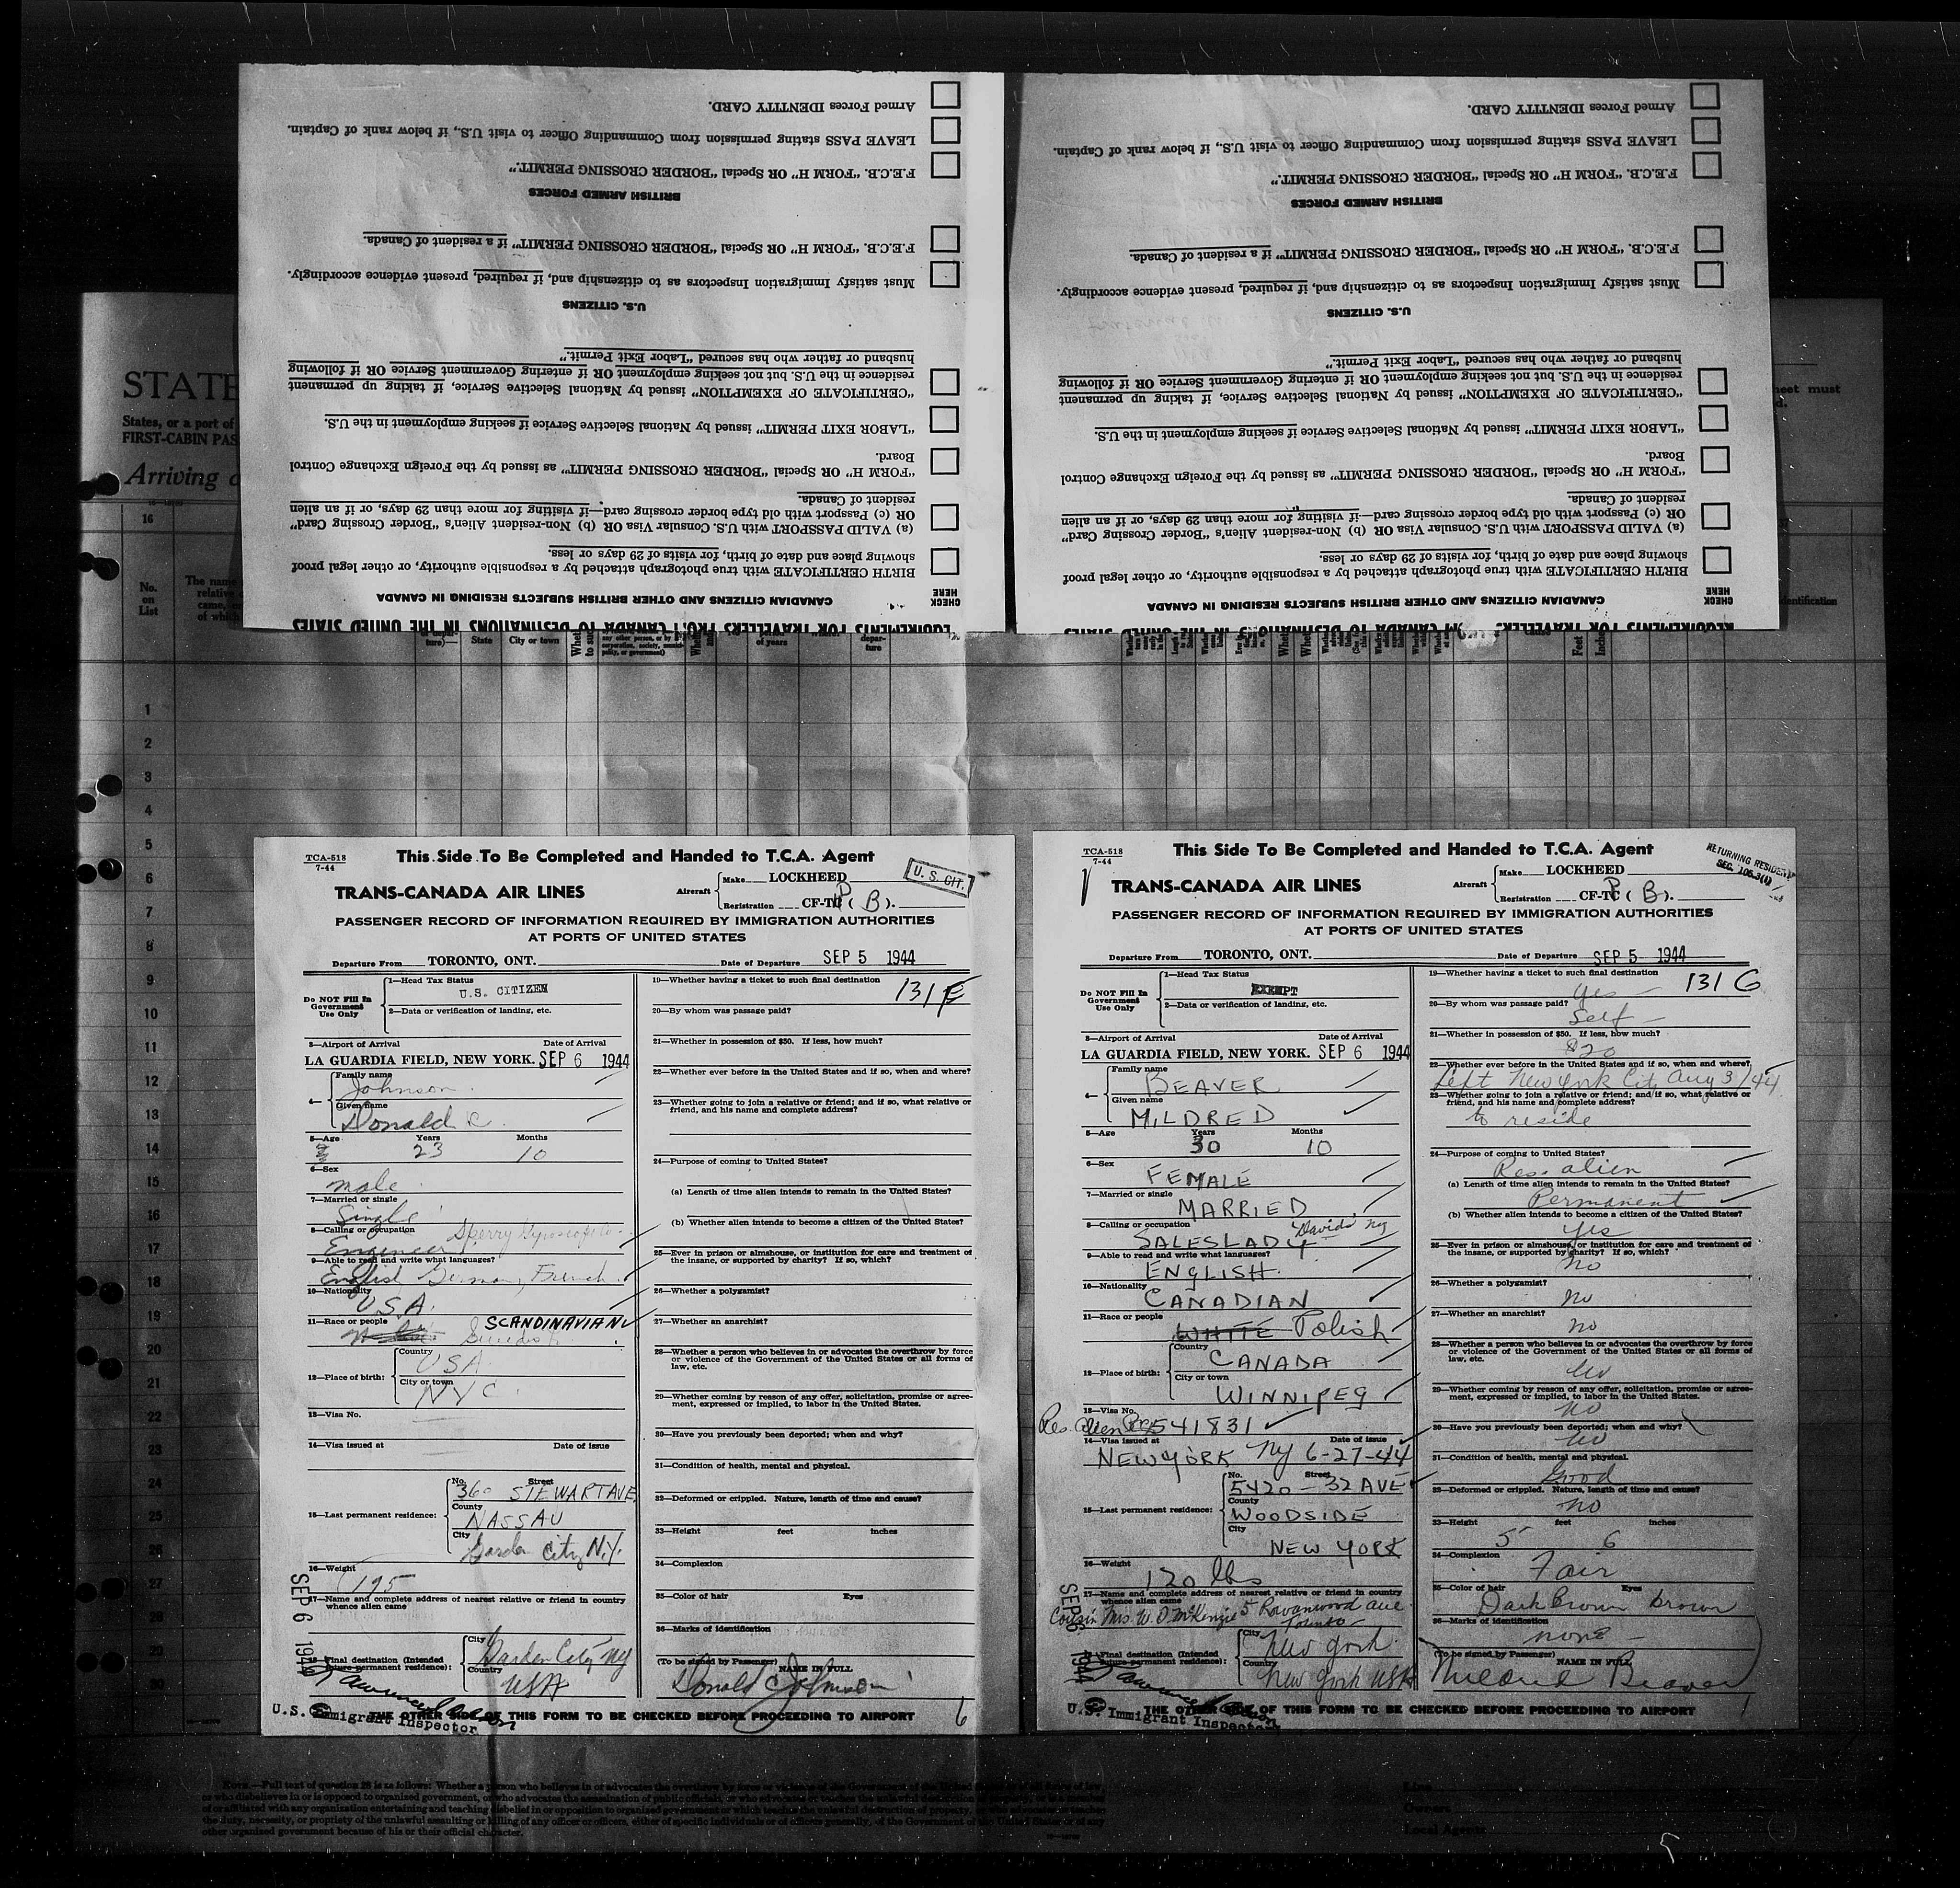 REQUIREMENTS FOR TRAVELLERS FROM CANADA TO DESTINATIONS IN THE UNITED STATES
CHECK HERE
CANADIAN CITIZENS AND OTHER BRITISH SUBJECTS RESIDING IN CANADA
BIRTH CERTIFICATE with true photograph attached by a responsible authority, or other legal proof
showing place and date of birth, for visits of 29 days or less.
(a) VALID PASSPORT with U.S. Consular Visa OR (b) Non-resident Alien's "Border Crossing Card"
OR (c) Passport with old type border crossing card—if visiting for more than 29 days, or if an alien
resident of Canada.
"FORM H" OR Special "BORDER CROSSING PERMIT" as issued by the Foreign Exchange Control
Board.
"LABOR EXIT PERMIT" issued by National Selective Service if seeking employment in the U.S.
"CERTIFICATE OF EXEMPTION" issued by National Selective Service, if taking up permanent
residence in the U.S. but not seeking employment OR if entering Government Service OR if following
husband or father who has secured "Labor Exit Permit."
U.S. CITIZENS
Must satisfy Immigration Inspectors as to citizenship and, if required, present evidence accordingly.
F.E.C.B. "FORM H" OR Special "BORDER CROSSING PERMIT" if a resident of Canada.
BRITISH ARMED FORCES
F.E.C.B. "FORM H" OR Special "BORDER CROSSING PERMIT."
LEAVE PASS stating permission from Commanding Officer to visit U.S., if below rank of Captain.
Armed Forces IDENTITY CARD.
REQUIREMENTS FOR TRAVELLERS FROM CANADA TO DESTINATIONS IN THE UNITED STATES
CHECK HERE
CANADIAN CITIZENS AND OTHER BRITISH SUBJECTS RESIDING IN CANADA
BIRTH CERTIFICATE with true photograph attached by a responsible authority, or other legal proof
showing place and date of birth, for visits of 29 days or less.
(a) VALID PASSPORT with U.S. Consular Visa OR (b) Non-resident Alien's "Border Crossing Card"
OR (c) Passport with old type border crossing card—if visiting for more than 29 days, or if an alien
resident of Canada.
"FORM H" OR Special "BORDER CROSSING PERMIT" as issued by the Foreign Exchange Control
Board.
"LABOR EXIT PERMIT" issued by National Selective Service if seeking employment in the U.S.
"CERTIFICATE OF EXEMPTION" issued by National Selective Service, if taking up permanent
residence in the U.S. but not seeking employment OR if entering Government Service OR if following
husband or father who has secured "Labor Exit Permit."
U.S. CITIZENS
Must satisfy Immigration Inspectors as to citizenship and, if required, present evidence accordingly.
F.E.C.B. "FORM H" OR Special "BORDER CROSSING PERMIT" if a resident of Canada.
BRITISH ARMED FORCES
F.E.C.B. "FORM H" OR Special "BORDER CROSSING PERMIT."
LEAVE PASS stating permission from Commanding Officer to visit U.S., if below rank of Captain.
Armed Forces IDENTITY CARD.
STATE
States, or a port of
FIRST-CABIN PAS
Arriving
16
No. on List
State
City or town
1
2
3
4
5
6
7
8
9
10
11
12
13
14
15
16
17
18
19
20
21
22
23
24
25
26
27
28
29
30
TCA-518
7-44
This Side To Be Completed and Handed to T.C.A. Agent
U. S. CIT.
TRANS-CANADA AIR LINES
Aircraft
Make LOCKHEED
Registration CF-TC P (B).
PASSENGER RECORD OF INFORMATION REQUIRED BY IMMIGRATION AUTHORITIES
AT PORTS OF UNITED STATES
Departure From TORONTO, ONT. Date of Departure SEP 5 1944
Do NOT Fill In Government Use Only
1—Head Tax Status
U.S. CITIZEN
2—Data or verification of landing, etc.
3—Airport of Arrival Date of Arrival
LA GUARDIA FIELD, NEW YORK. SEP 6 1944
4— Family name
Johnson
Given name
Donald C
5—Age Years 23 Months 10
6—Sex
male
7—Married or single
Single
8—Calling or occupation
Engineer Sperry Gyroscope Co.
9—Able to read and write what languages?
English German, French
10—Nationality
USA
11—Race or people SCANDINAVIAN
Swedish
12—Place of birth: Country
USA
City or town
NYC
13—Visa No.
14—Visa issued at Date of issue
15—Last permanent residence: No. Street
360 STEWART AVE
County
NASSAU
City
Garden City N.Y.
16—Weight
195
17—Name and complete address of nearest relative or friend in country
whence alien came
18—Final destination (Intended future permanent residence):
City
Garden City NY
Country
USA
SEP 6 1944
U.S. Immigrant Inspector
19—Whether having a ticket to such final destination
131 E
20—By whom was passage paid?
21—Whether in possession of $50. If less, how much?
22—Whether ever before in the United States and if so, when and where?
23—Whether going to join a relative or friend; and if so, what relative or
friend, and his name and complete address?
24—Purpose of coming to United States?
(a) Length of time alien intends to remain in the United States?
(b) Whether alien intends to become a citizen of the United States?
25—Ever in prison or almshouse, or institution for care and treatment of
the insane, or supported by charity? If so, which?
26—Whether a polygamist?
27—Whether an anarchist?
28—Whether a person who believes in or advocates the overthrow by force
or violence of the Government of the United States or all forms of
law, etc.
29—Whether coming by reason of any offer, solicitation, promise or agree-
ment, expressed or implied, to labor in the United States.
30—Have you previously been deported; when and why?
31—Condition of health, mental and physical.
32—Deformed or crippled. Nature, length of time and cause?
33—Height feet inches
34—Complexion
35—Color of hair Eyes
36—Marks of identification
(To be signed by Passenger) NAME IN FULL
Donald C Johnson
THE OTHER SIDE OF THIS FORM TO BE CHECKED BEFORE PROCEEDING TO AIRPORT
6
TCA-518
7-44
This Side To Be Completed and Handed to T.C.A. Agent
RETURNING RESIDENT
SEC. 106.3(1)
TRANS-CANADA AIR LINES
Aircraft
Make LOCKHEED
Registration CF-TC P (B).
PASSENGER RECORD OF INFORMATION REQUIRED BY IMMIGRATION AUTHORITIES
AT PORTS OF UNITED STATES
Departure From TORONTO, ONT. Date of Departure SEP 5 1944
Do NOT Fill In Government Use Only
1—Head Tax Status
EXEMPT
2—Data or verification of landing, etc.
3—Airport of Arrival Date of Arrival
LA GUARDIA FIELD, NEW YORK. SEP 6 1944
4— Family name
BEAVER
Given name
MILDRED
5—Age Years 30 Months 10
6—Sex
FEMALE
7—Married or single
MARRIED
8—Calling or occupation
SALESLADY Davids NY
9—Able to read and write what languages?
ENGLISH
10—Nationality
CANADIAN
11—Race or people
WHITE Polish
12—Place of birth: Country
CANADA
City or town
WINNIPEG
13—Visa No.
Res. Alien 541831
14—Visa issued at Date of issue
NEW YORK NY 6-27-44
15—Last permanent residence: No. Street
5420 - 32 AVE
County
WOODSIDE
City
NEW YORK
16—Weight
120 lbs
17—Name and complete address of nearest relative or friend in country
whence alien came
Cousin Mrs. W. O. McKenzie 5 Ravanwood Ave
Toronto
18—Final destination (Intended future permanent residence):
City
New York
Country
New York USA
SEP 6 1944
U.S. Immigrant Inspector
19—Whether having a ticket to such final destination
Yes 131 G
20—By whom was passage paid?
Self
21—Whether in possession of $50. If less, how much?
$20
22—Whether ever before in the United States and if so, when and where?
Left New York City Aug 3/44
23—Whether going to join a relative or friend; and if so, what relative or
friend, and his name and complete address?
to reside
24—Purpose of coming to United States?
Res. alien
(a) Length of time alien intends to remain in the United States?
Permanent
(b) Whether alien intends to become a citizen of the United States?
Yes
25—Ever in prison or almshouse, or institution for care and treatment of
the insane, or supported by charity? If so, which?
No
26—Whether a polygamist?
No
27—Whether an anarchist?
No
28—Whether a person who believes in or advocates the overthrow by force
or violence of the Government of the United States or all forms of
law, etc.
No
29—Whether coming by reason of any offer, solicitation, promise or agree-
ment, expressed or implied, to labor in the United States.
No
30—Have you previously been deported; when and why?
No
31—Condition of health, mental and physical.
Good
32—Deformed or crippled. Nature, length of time and cause?
No
33—Height feet inches
5 6
34—Complexion
Fair
35—Color of hair Eyes
Dark Brown brown
36—Marks of identification
none
(To be signed by Passenger) NAME IN FULL
Mildred Beaver
THE OTHER SIDE OF THIS FORM TO BE CHECKED BEFORE PROCEEDING TO AIRPORT
NOTE.—Full text of question 28 is as follows: Whether a person who believes in or advocates the overthrow by force or violence of the Government of the United States or of all forms of law,
or who disbelieves in or is opposed to organized government, or who advocates the assassination of public officials, or who advocates or teaches the unlawful destruction of property, or is a member
of or affiliated with any organization entertaining and teaching disbelief in or opposition to organized government or which teaches the unlawful destruction of property, or who advocates or teaches
the duty, necessity, or propriety of the unlawful assaulting or killing of any officer or officers, either of specific individuals or of officers generally, of the Government of the United States or of any
other organized government because of his or their official character.
Line
Owners
Local Agents
5